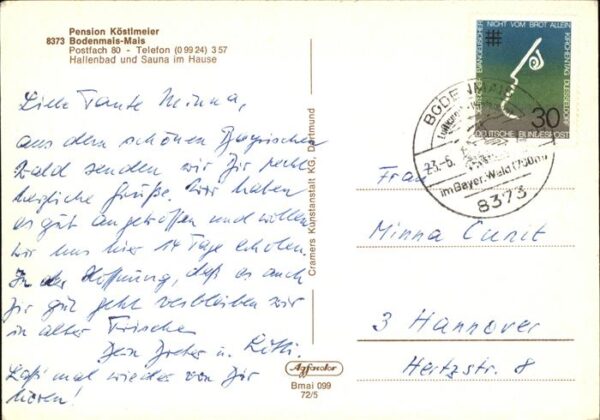 Pension Köstlmeier
8373 Bodenmais-Mais
Postfach 80 - Telefon (0 99 24) 3 57
Hallenbad und Sauna im Hause
Liebe Tante Minna,
aus dem schönen Bayrischen
Wald senden wir Dir recht
herzliche Grüße. Wir haben
es gut angetroffen und wollen
wir uns hier 14 Tage erholen.
In der Hoffnung, daß es auch
Dir gut geht verbleiben wir
in alter Frische
Dein Dieter u. Lilli.
Laß mal wieder von Dir
hören!
Cramers Kunstanstalt KG, Dortmund
Agfacolor
Bmai 099
72/5
NICHT VOM BROT ALLEIN
KIRCHENTAG DUESSELDORF
30
DEUTSCHE BUNDESPOST
BODENMAIS
23.-6.
im Bayer. Wald (700m)
8373
Frau
Minna Cunit
3 Hannover
Hertzstr. 8